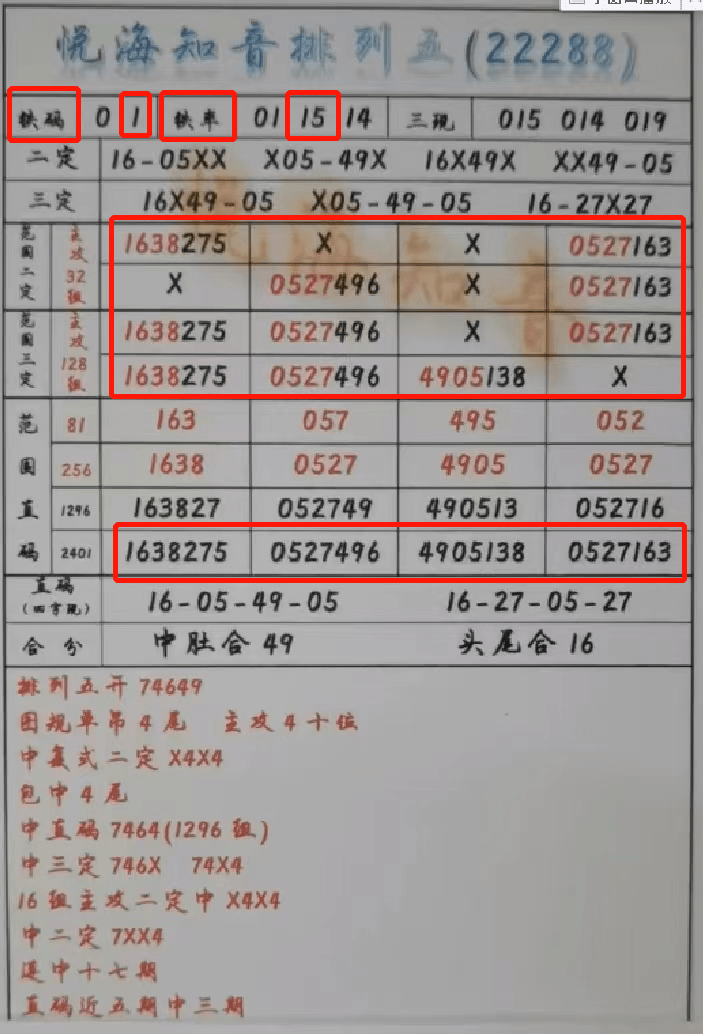 悦海知音排列五(22288)
铁码 0 1 铁率 01 15 14 三现 015 014 019
二定 16-05XX X05-49X 16X49X XX49-05
三定 16X49-05 X05-49-05 16-27X27
范围二定 主攻32组 1638275 X X 0527163
X 0527496 X 0527163
范围三定 主攻128组 1638275 0527496 X 0527163
1638275 0527496 4905138 X
范围直码 81 163 057 495 052
256 1638 0527 4905 0527
1296 163827 052749 490513 052716
2401 1638275 0527496 4905138 0527163
直码 16-05-49-05 16-27-05-27
(四字现)
合分 中肚合49 头尾合16
排列五开74649
围规单吊4尾 主攻4十位
中复式二定X4X4
包中4尾
中直码7464(1296组)
中三定746X 74X4
16组主攻二定中X4X4
中二定7XX4
连中十七期
直码近五期中三期